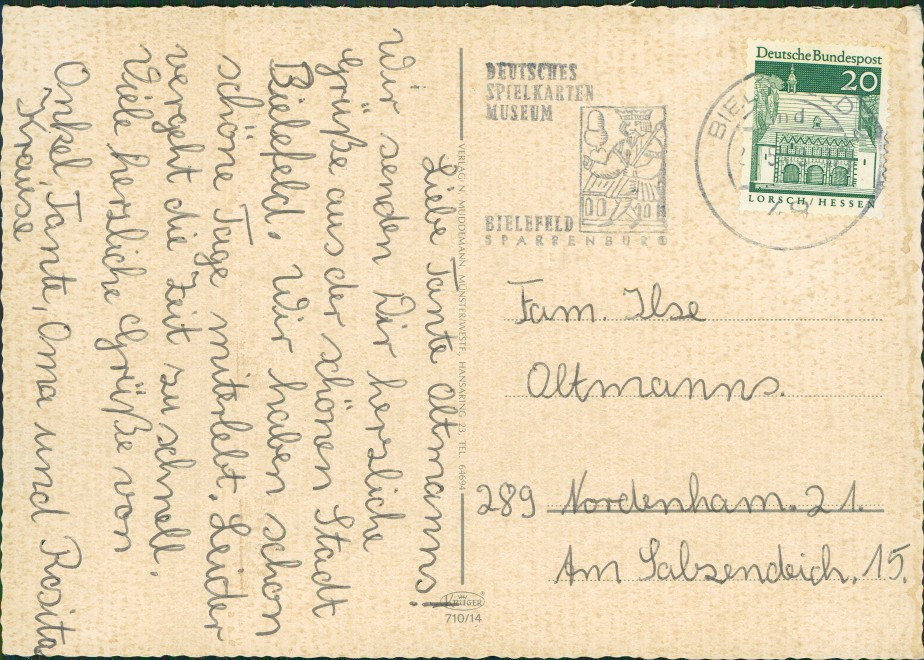 Liebe Tante Altmanns!
Wir senden Dir herzliche
Grüße aus der schönen Stadt
Bielefeld. Wir haben schon
schöne Tage miterlebt. Leider
vergeht die Zeit zu schnell.
Viele herzliche Grüße von
Onkel, Tante, Oma und Rosita
Krewese
VERLAG N. MUDDEMANN, MÜNSTER/WESTF., HANSARING 23, TEL. 64694
KRÜGER
710/14
DEUTSCHES
SPIELKARTEN
MUSEUM
BIELEFELD
SPARRENBURG
BIELEFELD
Deutsche Bundespost
20
LORSCH/HESSEN
Fam. Ilse
Altmanns.
289 Nordenham. 21.
Am Salzendeich, 15.